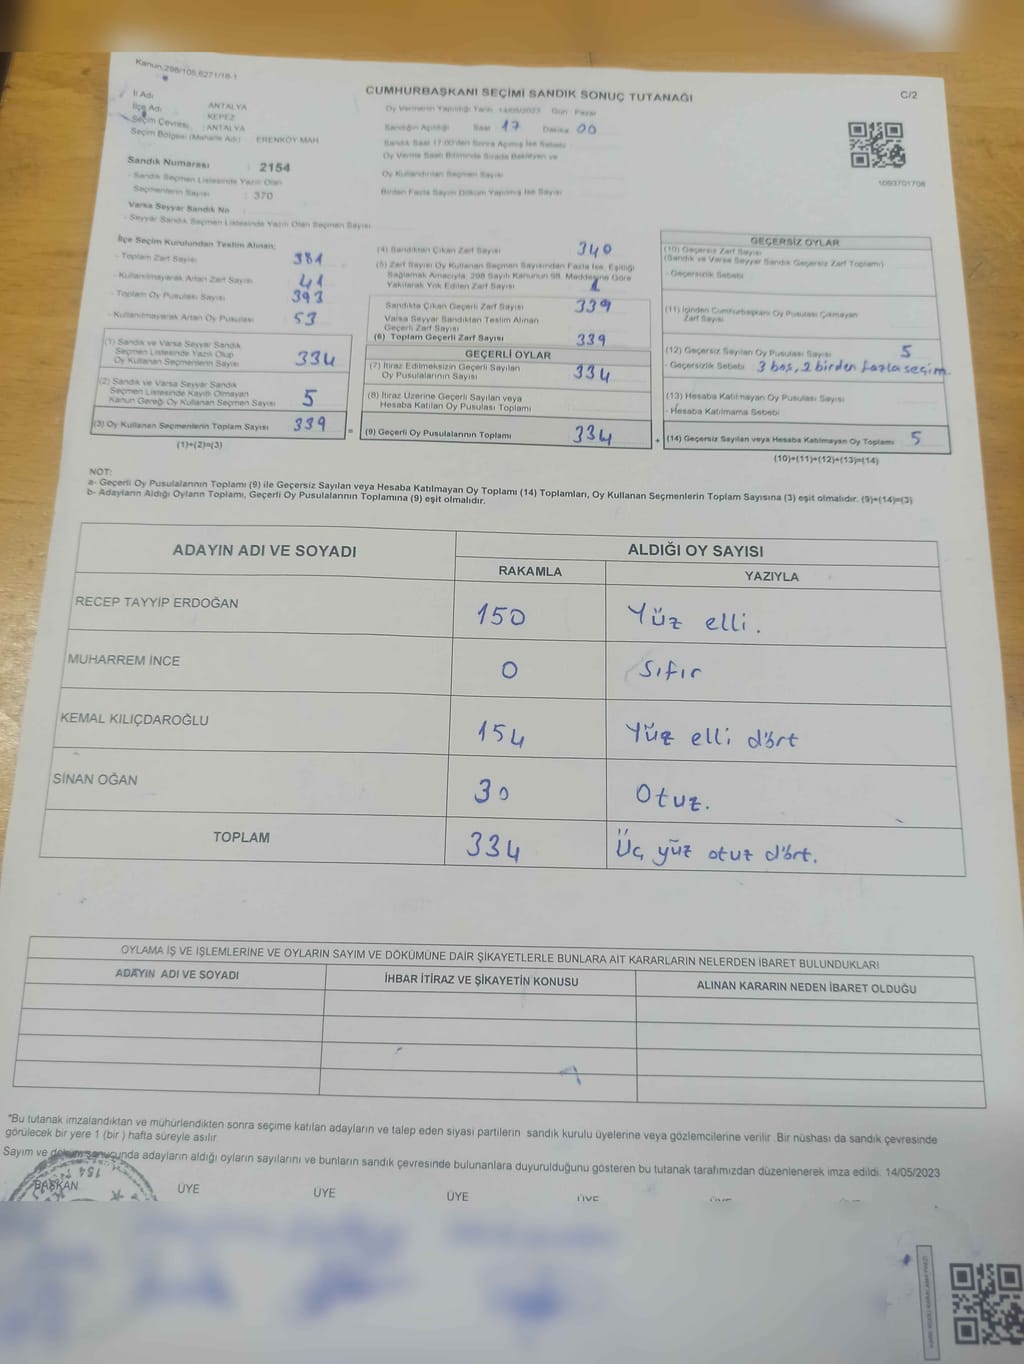 Kanun:298/105,6271/18-1
CUMHURBAŞKANI SEÇİMİ SANDIK SONUÇ TUTANAĞI
C/2
İl Adı : ANTALYA
İlçe Adı : KEPEZ
Seçim Çevresi : ANTALYA
Seçim Bölgesi (Mahalle Adı) : ERENKÖY MAH
Oy Vermenin Yapıldığı Tarih : 14/05/2023 Gün : Pazar
Sandığın Açıldığı Saat 17 Dakika 00
Sandık Saat 17:00'den Sonra Açılmış İse Sebebi
Oy Verme Saati Bitiminde Sırada Bekleyen ve
Oy Kullandırılan Seçmen Sayısı
Birden Fazla Sayım Döküm Yapılmış İse Sayısı
1093701708
Sandık Numarası : 2154
- Sandık Seçmen Listesinde Yazılı Olan
Seçmenlerin Sayısı : 370
Varsa Seyyar Sandık No :
- Seyyar Sandık Seçmen Listesinde Yazılı Olan Seçmen Sayısı
İlçe Seçim Kurulundan Teslim Alınan;
- Toplam Zarf Sayısı 381
- Kullanılmayarak Artan Zarf Sayısı 41
- Toplam Oy Pusulası Sayısı 393
- Kullanılmayarak Artan Oy Pusulası 53
(1) Sandık ve Varsa Seyyar Sandık
Seçmen Listesinde Yazılı Olup
Oy Kullanan Seçmenlerin Sayısı 334
(2) Sandık ve Varsa Seyyar Sandık
Seçmen Listesinde Kayıtlı Olmayan
Kanun Gereği Oy Kullanan Seçmen Sayısı 5
(3) Oy Kullanan Seçmenlerin Toplam Sayısı 339
(1)+(2)=(3)
(4) Sandıktan Çıkan Zarf Sayısı 340
(5) Zarf Sayısı Oy Kullanan Seçmen Sayısından Fazla İse, Eşitliği
Sağlamak Amacıyla, 298 Sayılı Kanunun 98. Maddesine Göre
Yakılarak Yok Edilen Zarf Sayısı 1
Sandıkta Çıkan Geçerli Zarf Sayısı 339
Varsa Seyyar Sandıktan Teslim Alınan
Geçerli Zarf Sayısı
(6) Toplam Geçerli Zarf Sayısı 339
GEÇERLİ OYLAR
(7) İtiraz Edilmeksizin Geçerli Sayılan
Oy Pusulalarının Sayısı 334
(8) İtiraz Üzerine Geçerli Sayılan veya
Hesaba Katılan Oy Pusulası Toplamı
= (9) Geçerli Oy Pusulalarının Toplamı 334
GEÇERSİZ OYLAR
(10) Geçersiz Zarf Sayısı
(Sandık ve Varsa Seyyar Sandık Geçersiz Zarf Toplamı)
- Geçersizlik Sebebi
(11) İçinden Cumhurbaşkanı Oy Pusulası Çıkmayan
Zarf Sayısı
(12) Geçersiz Sayılan Oy Pusulası Sayısı 5
- Geçersizlik Sebebi 3 boş, 2 birden fazla seçim.
(13) Hesaba Katılmayan Oy Pusulası Sayısı
- Hesaba Katılmama Sebebi
+ (14) Geçersiz Sayılan veya Hesaba Katılmayan Oy Toplamı 5
(10)+(11)+(12)+(13)=(14)
NOT:
a- Geçerli Oy Pusulalarının Toplamı (9) ile Geçersiz Sayılan veya Hesaba Katılmayan Oy Toplamı (14) Toplamları, Oy Kullanan Seçmenlerin Toplam Sayısına (3) eşit olmalıdır. (9)+(14)=(3)
b- Adayların Aldığı Oyların Toplamı, Geçerli Oy Pusulalarının Toplamına (9) eşit olmalıdır.
ADAYIN ADI VE SOYADI
ALDIĞI OY SAYISI
RAKAMLA
YAZIYLA
RECEP TAYYİP ERDOĞAN 150 Yüz elli.
MUHARREM İNCE 0 Sıfır
KEMAL KILIÇDAROĞLU 154 Yüz elli dört
SİNAN OĞAN 30 Otuz.
TOPLAM 334 Üç yüz otuz dört.
OYLAMA İŞ VE İŞLEMLERİNE VE OYLARIN SAYIM VE DÖKÜMÜNE DAİR ŞİKAYETLERLE BUNLARA AİT KARARLARIN NELERDEN İBARET BULUNDUKLARI
ADAYIN ADI VE SOYADI
İHBAR İTİRAZ VE ŞİKAYETİN KONUSU
ALINAN KARARIN NEDEN İBARET OLDUĞU
"Bu tutanak imzalandıktan ve mühürlendikten sonra seçime katılan adayların ve talep eden siyasi partilerin sandık kurulu üyelerine veya gözlemcilerine verilir. Bir nüshası da sandık çevresinde
görülecek bir yere 1 (bir ) hafta süreyle asılır.
Sayım ve döküm sonucunda adayların aldığı oyların sayılarını ve bunların sandık çevresinde bulunanlara duyurulduğunu gösteren bu tutanak tarafımızdan düzenlenerek imza edildi. 14/05/2023
BAŞKAN ÜYE ÜYE ÜYE ÜYE